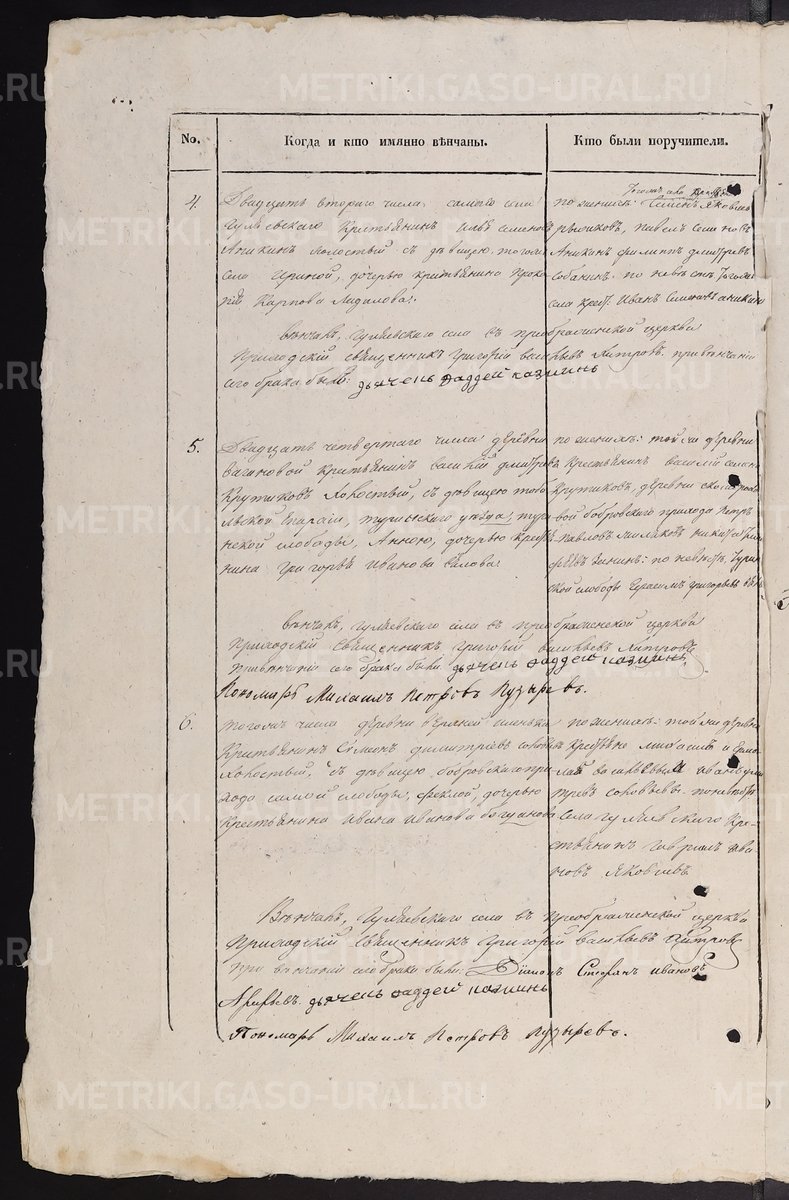 No.
Когда и кто имянно вѣнчаны.
Кто были поручители.
4.
Двадцать втораго числа,
Гуляевскаго Крестьянинъ
Аникинъ холостый съ дѣвицею, тогожъ
села Ириной, дочерью крестьянина Проко-
пія Карпова
по женихѣ: Семенъ Яковлевъ
Павелъ Семеновъ
Аникинъ филипъ дмитревъ
Собанинъ. по невѣстѣ тогожъ
села Крест: Иванъ Семеновъ аникинъ
вѣнчалъ, Гуляевскаго села съ преображенской церкви
Приходскій священникъ Григорій васильевъ привѣнчаніи
сего брака были: дьячекъ фаддей казминъ
5.
Двадцать четвертаго числа деревни
вагановой Крестьянинъ василій дмитревъ
Крутиковъ холостый, съ дѣвицею тобо-
льской Епархіи, туринскаго уѣзда, тури-
нской слободы, Анною, дочерью Кресть-
нина Григорья Иванова
по женихѣ: той же деревни
Крестьянинъ василей
Крутиковъ, деревни
вой бобровскаго прихода Петръ
Павловъ
по невѣстѣ, Турин-
ской слободы Герасимъ григорьевъ
вѣнчалъ, Гуляевскаго села съ преображенской церкви
приходскій Священникъ Григорій васильевъ
привѣнчаніи сего брака были дьячекъ фаддей казминъ
Пономарь Михаилъ Петровъ Пузыревъ.
6.
тогожъ числа деревни верхней
Крестьянинъ Семенъ димитріевъ
холостый, съ дѣвицею бобровскаго при-
хода самой слободы, феклой дочерью
крестьянина Ивана Иванова
по женихѣ: той же деревни
Крестьяне михаилъ и
лай васильевы и иванъ дми-
тревъ соловьевъ. по невѣстѣ
села гуляевскаго Кре-
стьянинъ гаврилъ ива-
новъ Яковлевъ
Вѣнчалъ, Гуляевскаго села въ преображенской церкви
Приходскій Священникъ Григорій васильевъ
При вѣнчаніи сего брака были: Діаконъ Стефанъ ивановъ
Арефьевъ дьячекъ фаддей казминъ
Пономарь Михаилъ Петровъ Пузыревъ.
METRIKI.GASO-URAL.RU